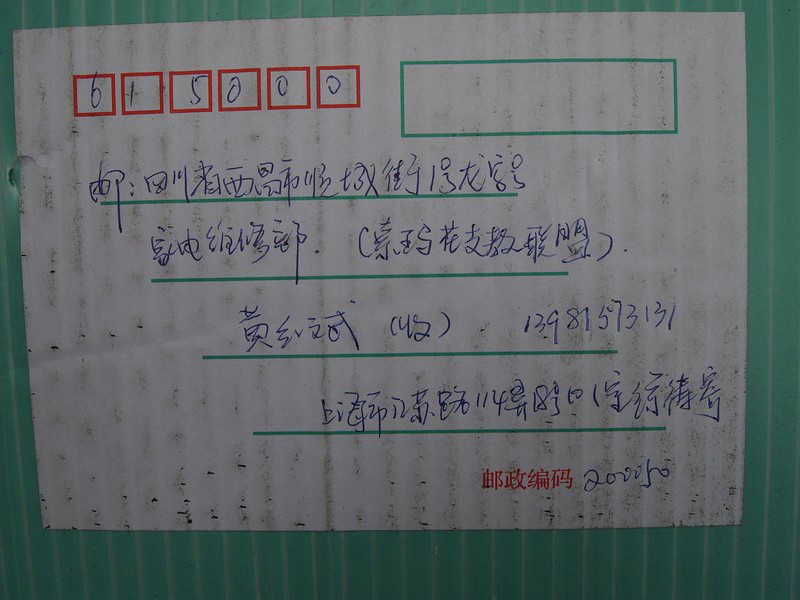 615000
邮:四川省西昌市顺城街1号龙字号
家电维修部.(索玛花支教联盟).
黄红斌(收) 13981573131
上海市江苏路114弄8号口(宝 寄
邮政编码 200050